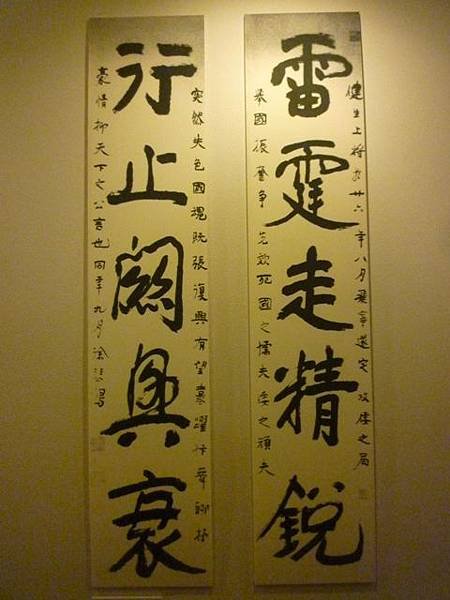 健生上將於廿六年八月飛寧遂定攻倭之局
雷霆走精銳
舉國振奮爭先效死國之懦夫倭之頑夫
突然失色國魂既張復興有望忭舞聊抒
行止關興衰
豪情抑天下之公言也同年九月